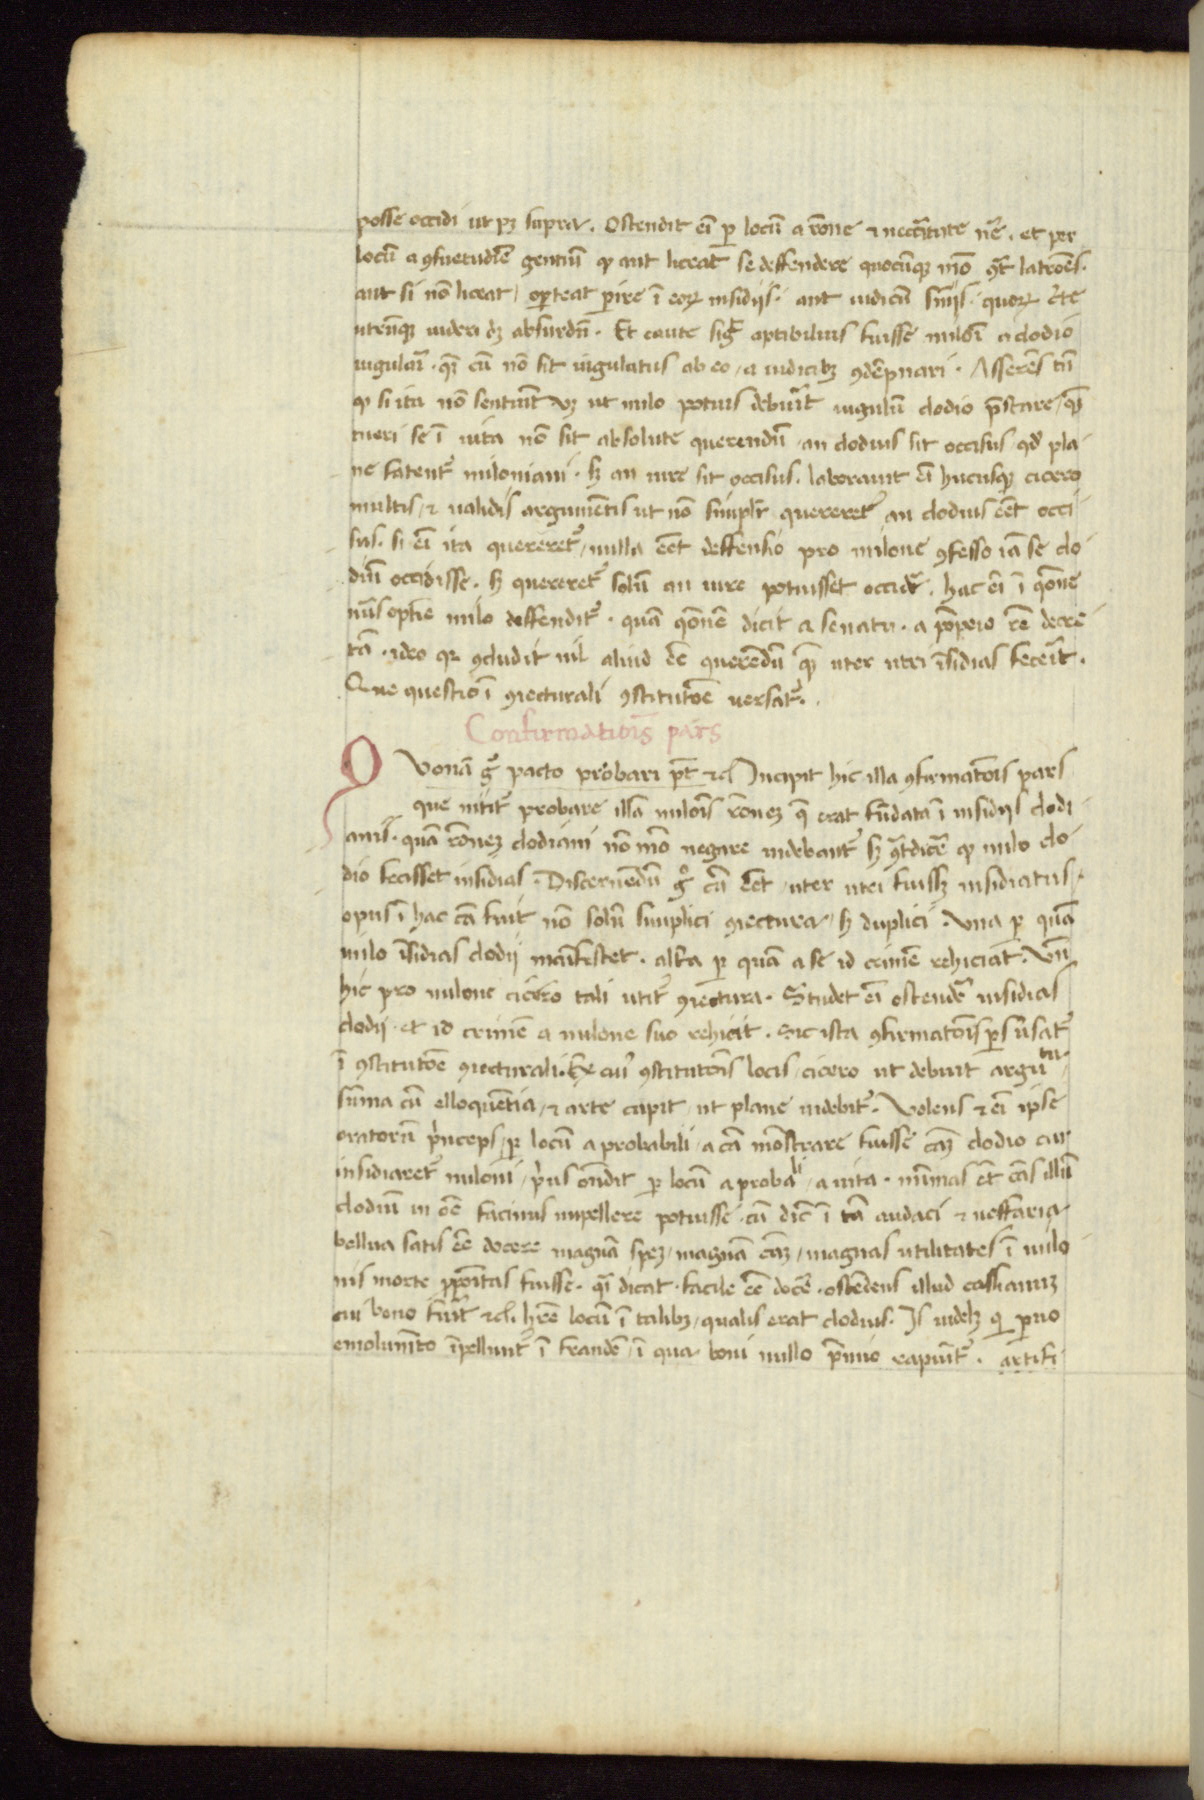 posse occidi ut pꝫ supra. Ostendit eī ꝑ locū a rōne ⁊ neccītate nr̄e. et per
locū a ꝯsuetudīe gentiū ꝙ aut liceat se deffendere quocūqꝫ mō ꝯt̄ latrōes.
aut si nō liceat, oꝑteat ꝑire ī eoꝝ insidijs. aut iudicū suijs. quoꝝ c̄te
utrūqꝫ uideri dꝫ absurdū. Et caute sigͣ aptibilius fuisse milōi a clodio
iugulari. qͣ cū nō sit iugulatus ab eo, a iudicibꝫ ꝯdēpnari. Asserēs tn̄
ꝙ si ita nō sentiūt uꝫ ut milo potius debuīt iugulū clodio p̄stare, qͣꝫ
tueri se ī uita nō sit absolute querendū, an clodius sit occisus qd̄ pla
ne fatent᷑ miloniani. sꝫ an iure sit occisus. laborauit eī hucusqꝫ cicero
multis, ⁊ ualidis argumētis ut nō simplr̄ quereret᷑ an clodius eēt occi
sus. si eī ita quereret᷑, nulla eēt deffensio pro milone ꝯfesso iā se clo
diū occidisse. sꝫ quereret᷑ solū an iure potuisset occidi. hac eī ī qōne
nūs optīe milo deffendit᷑. quā qōnē dicit a senatu. a pōpeio rē decre
tā. ideo qꝫ ꝯcludit nil aliud eē querēdū qͣꝫ uter utri īsidias fecerit.
Que questio ī ꝯiecturali ꝯstitutōe uersat᷑.
Confirmatiōis pars
Quonā gͦ pacto probari pt̄ ⁊c̄ Incipit hic illa ꝯfirmatōis pars
que nitit᷑ probare illā milōis rōneꝫ q̄ erat fūdata ī insidijs clodi
anis. quā rōneꝫ clodiani nō mō negare uidebant᷑ sꝫ ꝯt̄dicē ꝙ milo clo
dio fecisset insidias. Discernēdū gͦ cū eēt, uter utri fuissꝫ insidiatus.
opus ī hac cā fuit nō solū simplici ꝯiectura, sꝫ duplici. Una ꝑ quā
milo īsidias clodij manifestet. altera ꝑ quā a se id crimē rehiciat. Un̄
hic pro milone cicero tali utit᷑ ꝯiectura. Studet eī ostendē insidias
clodij. et id crimē a milone suo rehicit. Sic ista ꝯfirmatōis ꝑs uersat᷑
ī ꝯstitutōe ꝯiecturali. Ex cui᷑ ꝯstitutōis locis, cicero ut debuit argu
suma cū elloquētia, ⁊ arte cupit, ut plane uidebit᷑. Volens ⁊ eī ipse
oratorū p̄nceps, ꝑ locū a probabili, a cā mōstrare fuisse cāꝫ clodio cur
insidiaret᷑ miloni, p̄us ōndit ꝑ locū a probaˡⁱ, a uita. minimas et cās illū
clodiū in oē facinus impellere potuisse. cū dic̄ ī tā audaci ⁊ neffaria
bellua satis eē docere magnā speꝫ, magnā cāꝫ, magnas utilitates ī milo
nis morte ꝓpositas fuisse. qͣ dicat. facile eē docē. ostēdens illud cassianuꝫ
cui bono fuit ⁊c̄. hr̄e locū ī talibꝫ, qualis erat clodius. Is uidelꝫ qͥ paruo
emolumēto īpellunt᷑ ī fraudē, ī qua boni nullo p̄mio rapiūt᷑. artifi